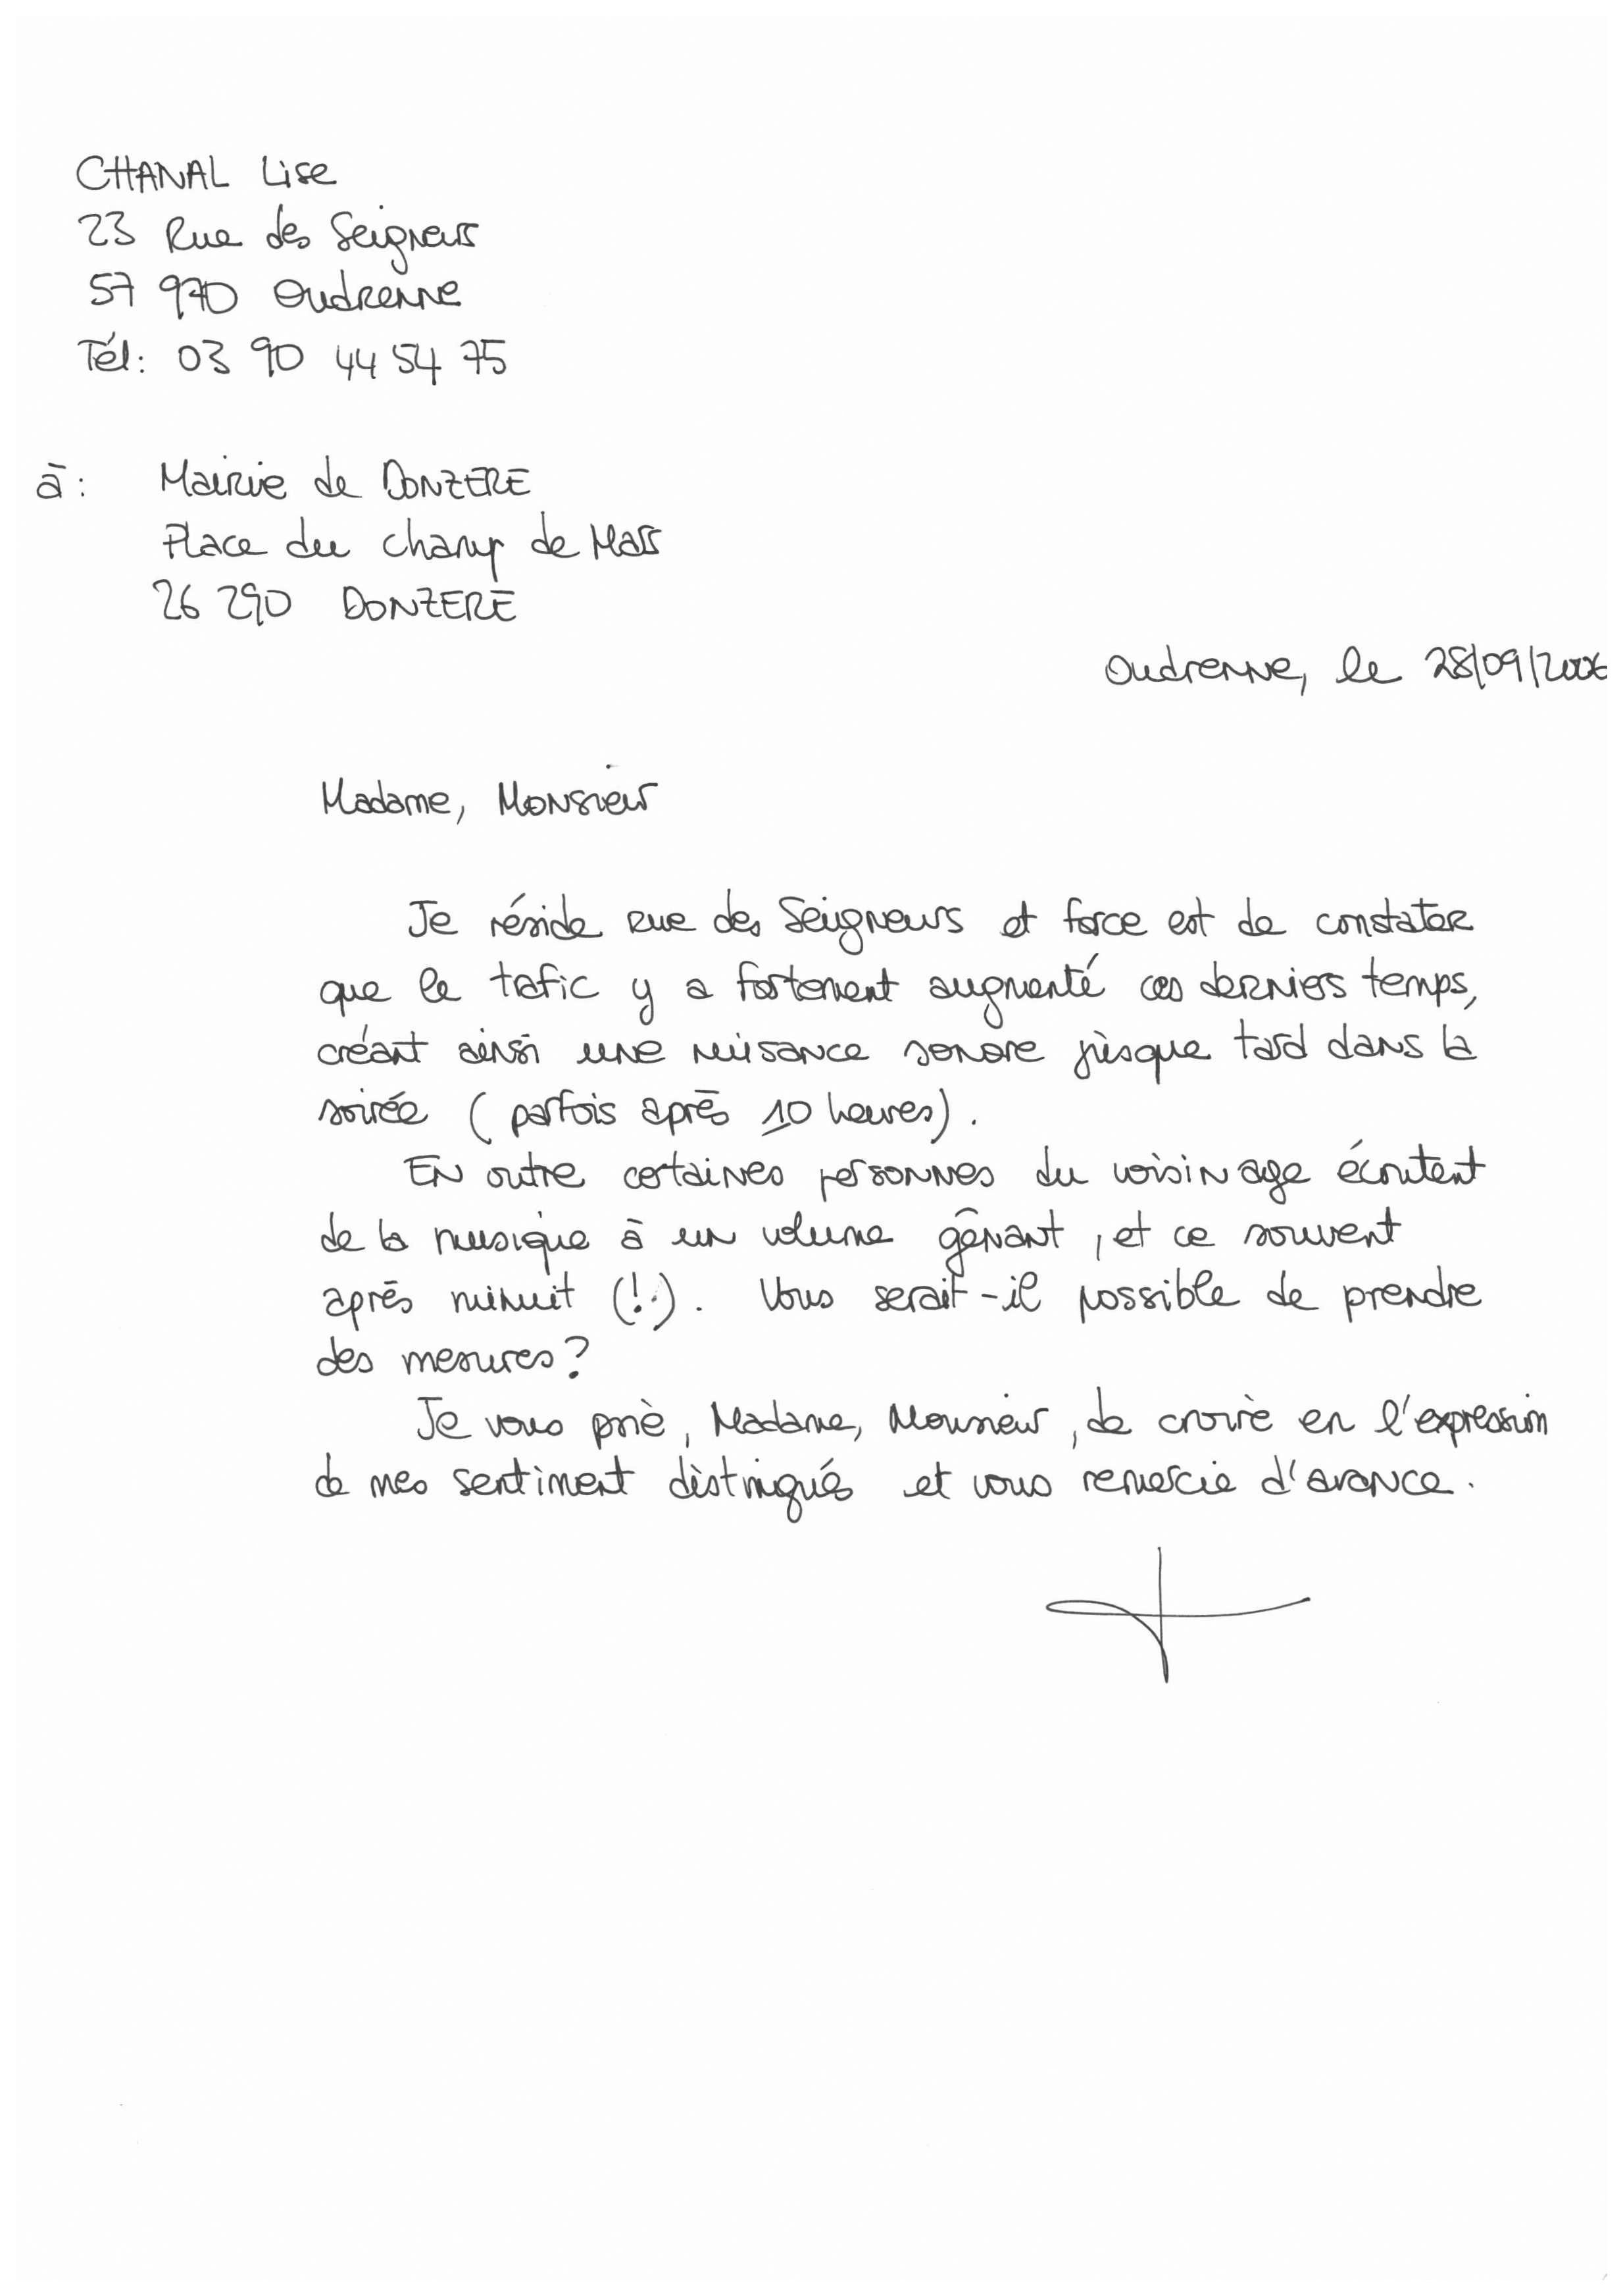 CHANAL Lise
23 Rue des Seigneurs
57 970 Oudrenne
Tél: 03 90 44 54 75
à: Mairie de DONZERE
Place du champ de Mars
26 290 DONZERE
Oudrenne, le 28/09/2006
Madame, Monsieur
Je réside rue des Seigneurs et force est de constater
que le trafic y a fortement augmenté ces derniers temps,
créant ainsi une nuisance sonore jusque tard dans la
soirée (parfois après 10 heures).
En outre certaines personnes du voisinage écoutent
de la musique à un volume gênant, et ce souvent
après minuit (!.). Vous serait-il possible de prendre
des mesures?
Je vous prie, Madame, Monsieur, de croire en l'expression
de mes sentiment distingués et vous remercie d'avance.